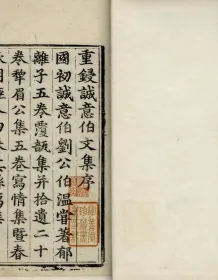 重鋟誠意伯文集序
國初誠意伯劉公伯温嘗著郁
離子五卷覆瓿集并拾遺二十
卷犂眉公集五卷寫情集暨春